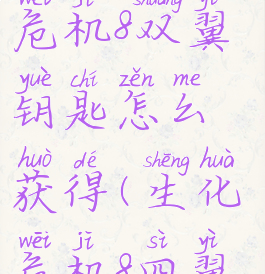 wēi jī shuāng yì
危机8双翼
yuè chí zěn me
钥匙怎么
huò dé shēng huà
获得(生化
wēi jī sì yì
危机8四翼